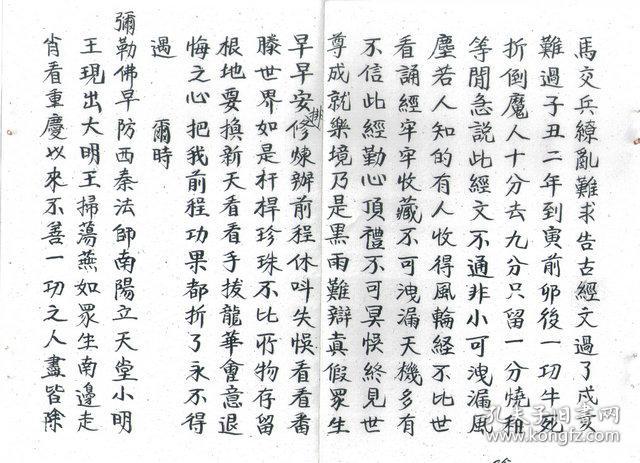 馬交兵繚亂難求告古經文過了戌亥
難過子丑二年到寅前卯後一切牛死
折倒魔人十分去九分只留一分燒和
等閒急說此經文不通非小可洩漏風
塵若人知的有人收得風輪経不比世
看誦經牢牢收藏不可洩漏天機多有
不信此經勤心頂禮不可異悞終見世
尊成就樂境乃是黑雨難辯真假眾生
早早安排修煉辦前程休呌失悞看看番
騰世界如是杆桿珍珠不比所物存留
根地要換新天看看手拔龍華會意退
悔之心把我前程功果都折了永不得
遇　爾時
彌勒佛早防西秦法師南陽立天堂小明
王現出大明王掃蕩燕如眾生南邊走
肖看重慶以來不善一切之人盡皆除
孔夫子旧书网
www.kongfz.com